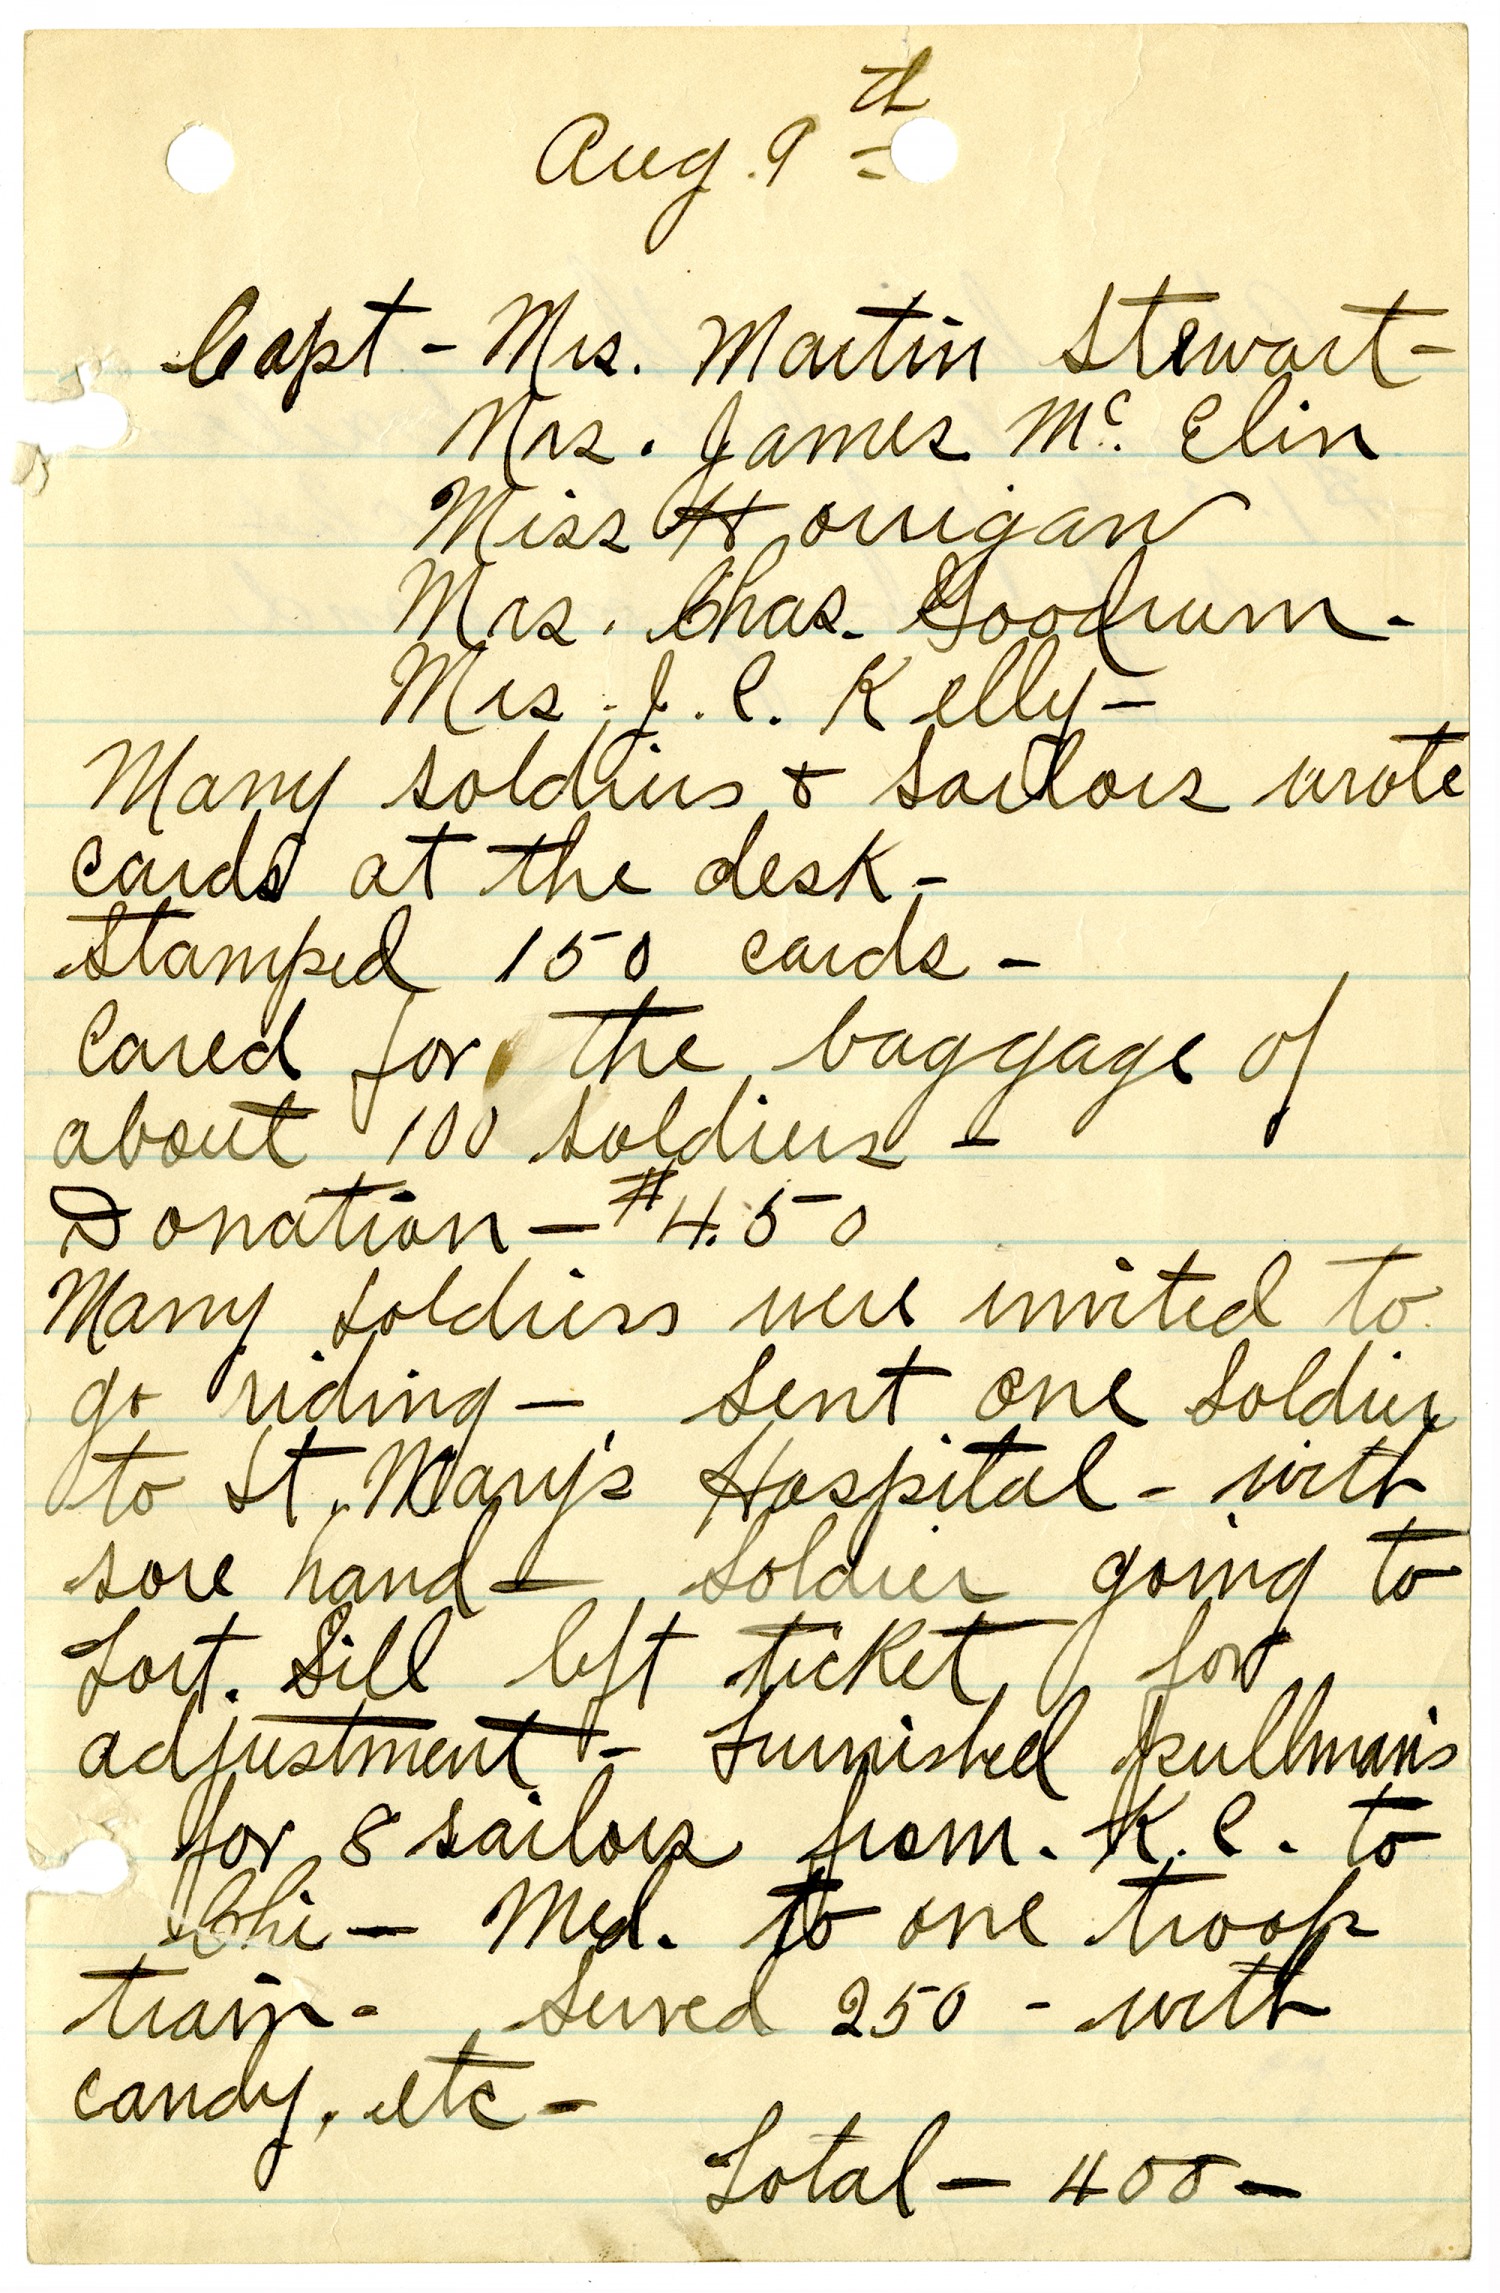 Aug. 9th
Capt - Mrs. Martin Stewart -
Mrs. James Mc. Elin
Miss Horrigan
Mrs. Chas. Goodrum -
Mrs. J. C. Kelly -
Many soldiers & sailors wrote
cards at the desk -
Stamped 150 cards -
Cared for the baggage of
about 100 soldiers -
Donation - $4.50
Many soldiers were invited to
go riding - Sent one soldier
to St. Mary's Hospital - with
sore hand - Soldier going to
Fort. Sill left ticket for
adjustment - Furnished pullman's
for 8 sailors from. K. C. to
Chi - Med. to one troop
train - Served 250 - with
candy, etc -
Total - 400 -